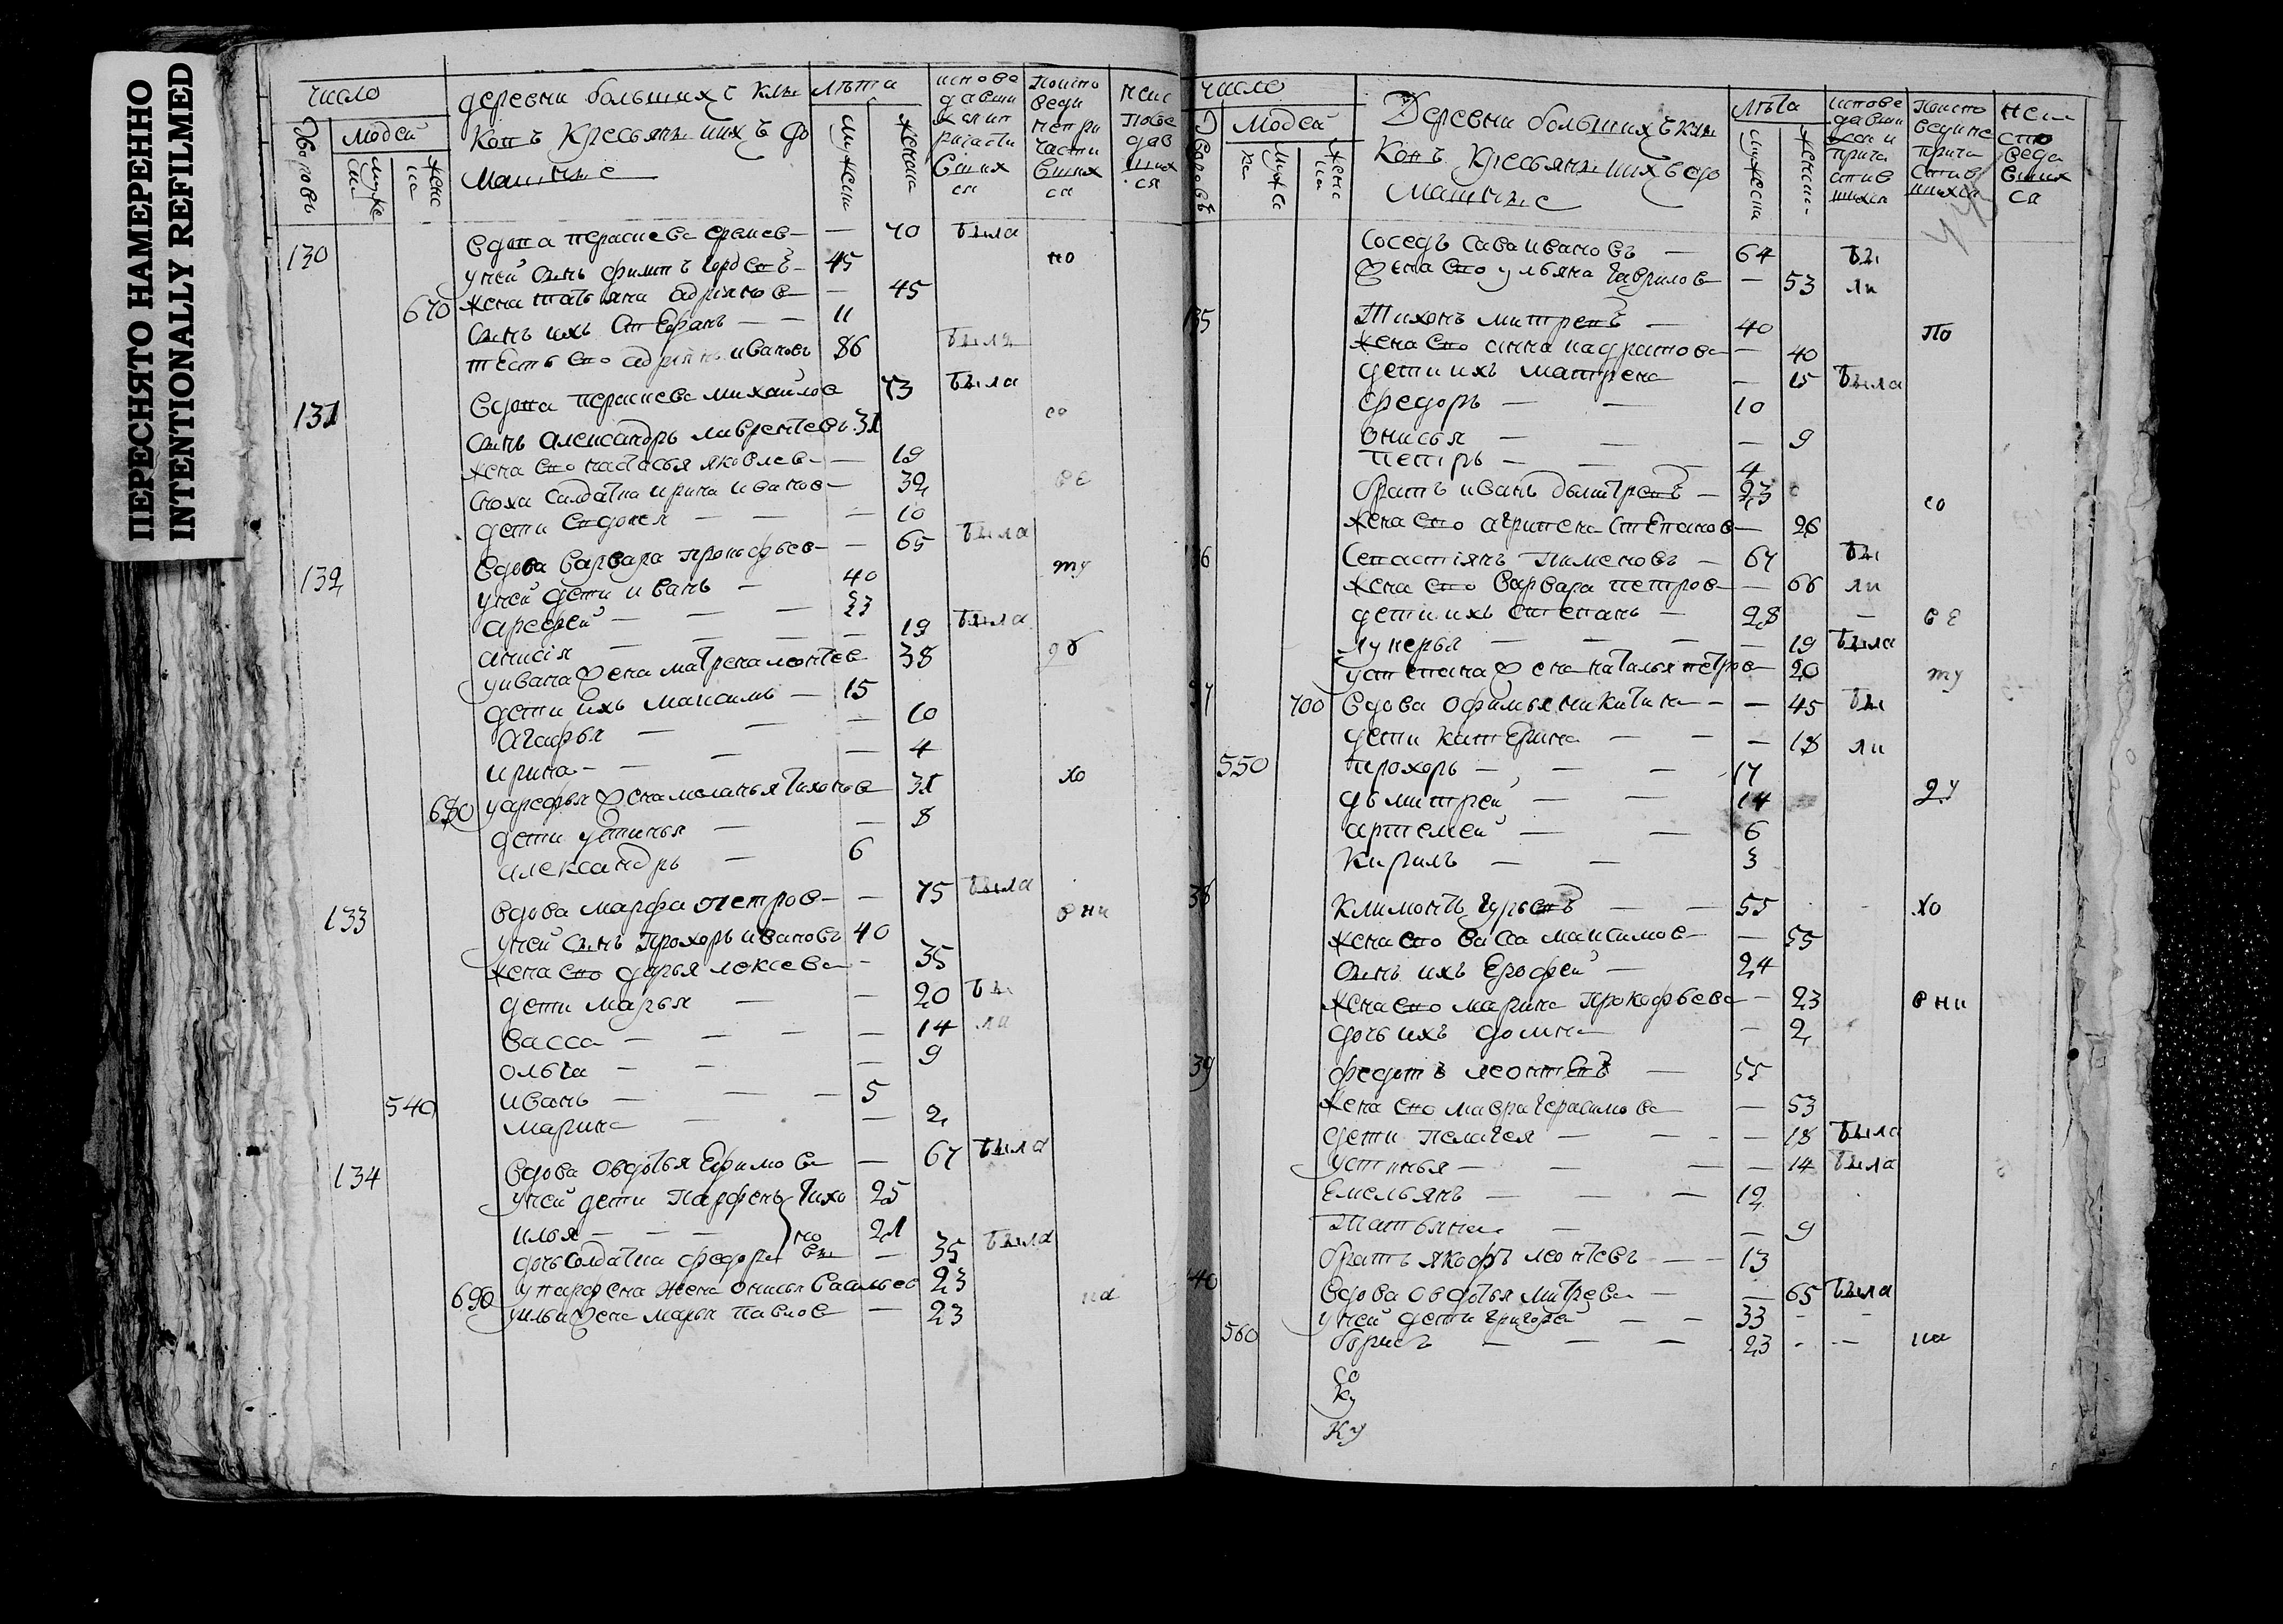 ПЕРЕСНЯТО НАМЕРЕННО
INTENTIONALLY REFILMED
число
Дворовъ
людей
муже
ска
женс
ка
деревни большихъ клы
ковъ крестьяне ихъ до
машные
лѣта
мужески
женска
испове
давши
хся и п
ричасти
вших
ся
по испо
веди
непри
части
вших
ся
неис
пове
дав
ших
ся
вдова прасковья ермолаев — 70 была
130 у ней сынъ филипъ гордеевъ 45 но
670 жена татьяна адриянов — 45
сынъ ихъ степанъ — — 11
тесть его адриянъ ивановъ 86 былъ
вдова прасковья михайлов 73 была
131 сынъ александръ лаврентьевъ 31 со
жена его настасья яковлев — 19
сноха салдатка ирина иванов — 32 ве
дети евдокея — — — 10
вдова варвара прокофьев — 65 была
132 у ней дети иванъ — 40 ту
арефей — — — 33
анисія — — — 19 была
у ивана жена матрена леонтев 38
дети ихъ максимъ — 15
агафья — — — 10
ирина — — — 4
у арефья жена меланья тихонов 31 хо
680 дети устинья — — 8
александръ — 6
вдова марфа петров — — 75 была
133 у ней сынъ прохоръ ивановъ 40 они
жена его дарья лексеева — 35
дети марья — — 20 бы
васса — — — 14 ли
ольга — — — 9
540 иванъ — — — 5
марина — — 2
вдова овдотья ефимов — 67 была
134 у ней дети парфенъ тихо 25
илья — — — но 21
дочь солдатка федора вы — 35 была
690 у парфена жена онисья васильев 23
у ильи жена марья павлов — 23
число
Дворовъ
людей
муже
ка
женс
ка
Деревни большихъ клы
ковъ крестьяне ихъ до
машные
лѣта
мужески
женски
испове
давши
хся и
прича
стив
шихся
по испо
веди не
прича
стив
шихся
не и
спо
веда
вших
ся
соседъ сава ивановъ — 64 бы
жена его ульяна гаврилов — 53 ли
135 Тихонъ митревъ — 40 по
жена его анна кадратова — 40
дети ихъ матрена — 15 была
федоръ — — 10
онисья — — — 9
петръ — — 4
братъ иванъ дмитревъ — 23 со
жена его агрипена степанов — 26
136 Севастіянъ Пименовъ — 67 бы
жена его варвара петров — 66 ли
дети ихъ степанъ — 28 — ве
лукерья — — — 19 была
у степана жена наталья петров 20 ту
137 700 вдова офимья никитина — — 45 бы
дети катерина — — — 18 ли
550 прохоръ — — — 17
дьмитрей — — 14
артемей — — 6
кирилъ — — 3
138 климонтъ гурьевъ — — 55 хо
жена его васса максимов — — 55
сынъ ихъ ерофей — 24
жена его марина прокофьева — 23 они
дочь ихъ домна — 2
139 федотъ леонтевъ — 55
жена его мавра герасимова — 53
дети пелагея — — — 18 была
устинья — — — 14 была
емельянъ — — — 12
татьяна — — 9
братъ якофъ леонтевъ — — 13
140 вдова овдотья митрева — — 65 была
у ней дети григорей — — 33
560 борисъ — — — 23
со
ку
ку